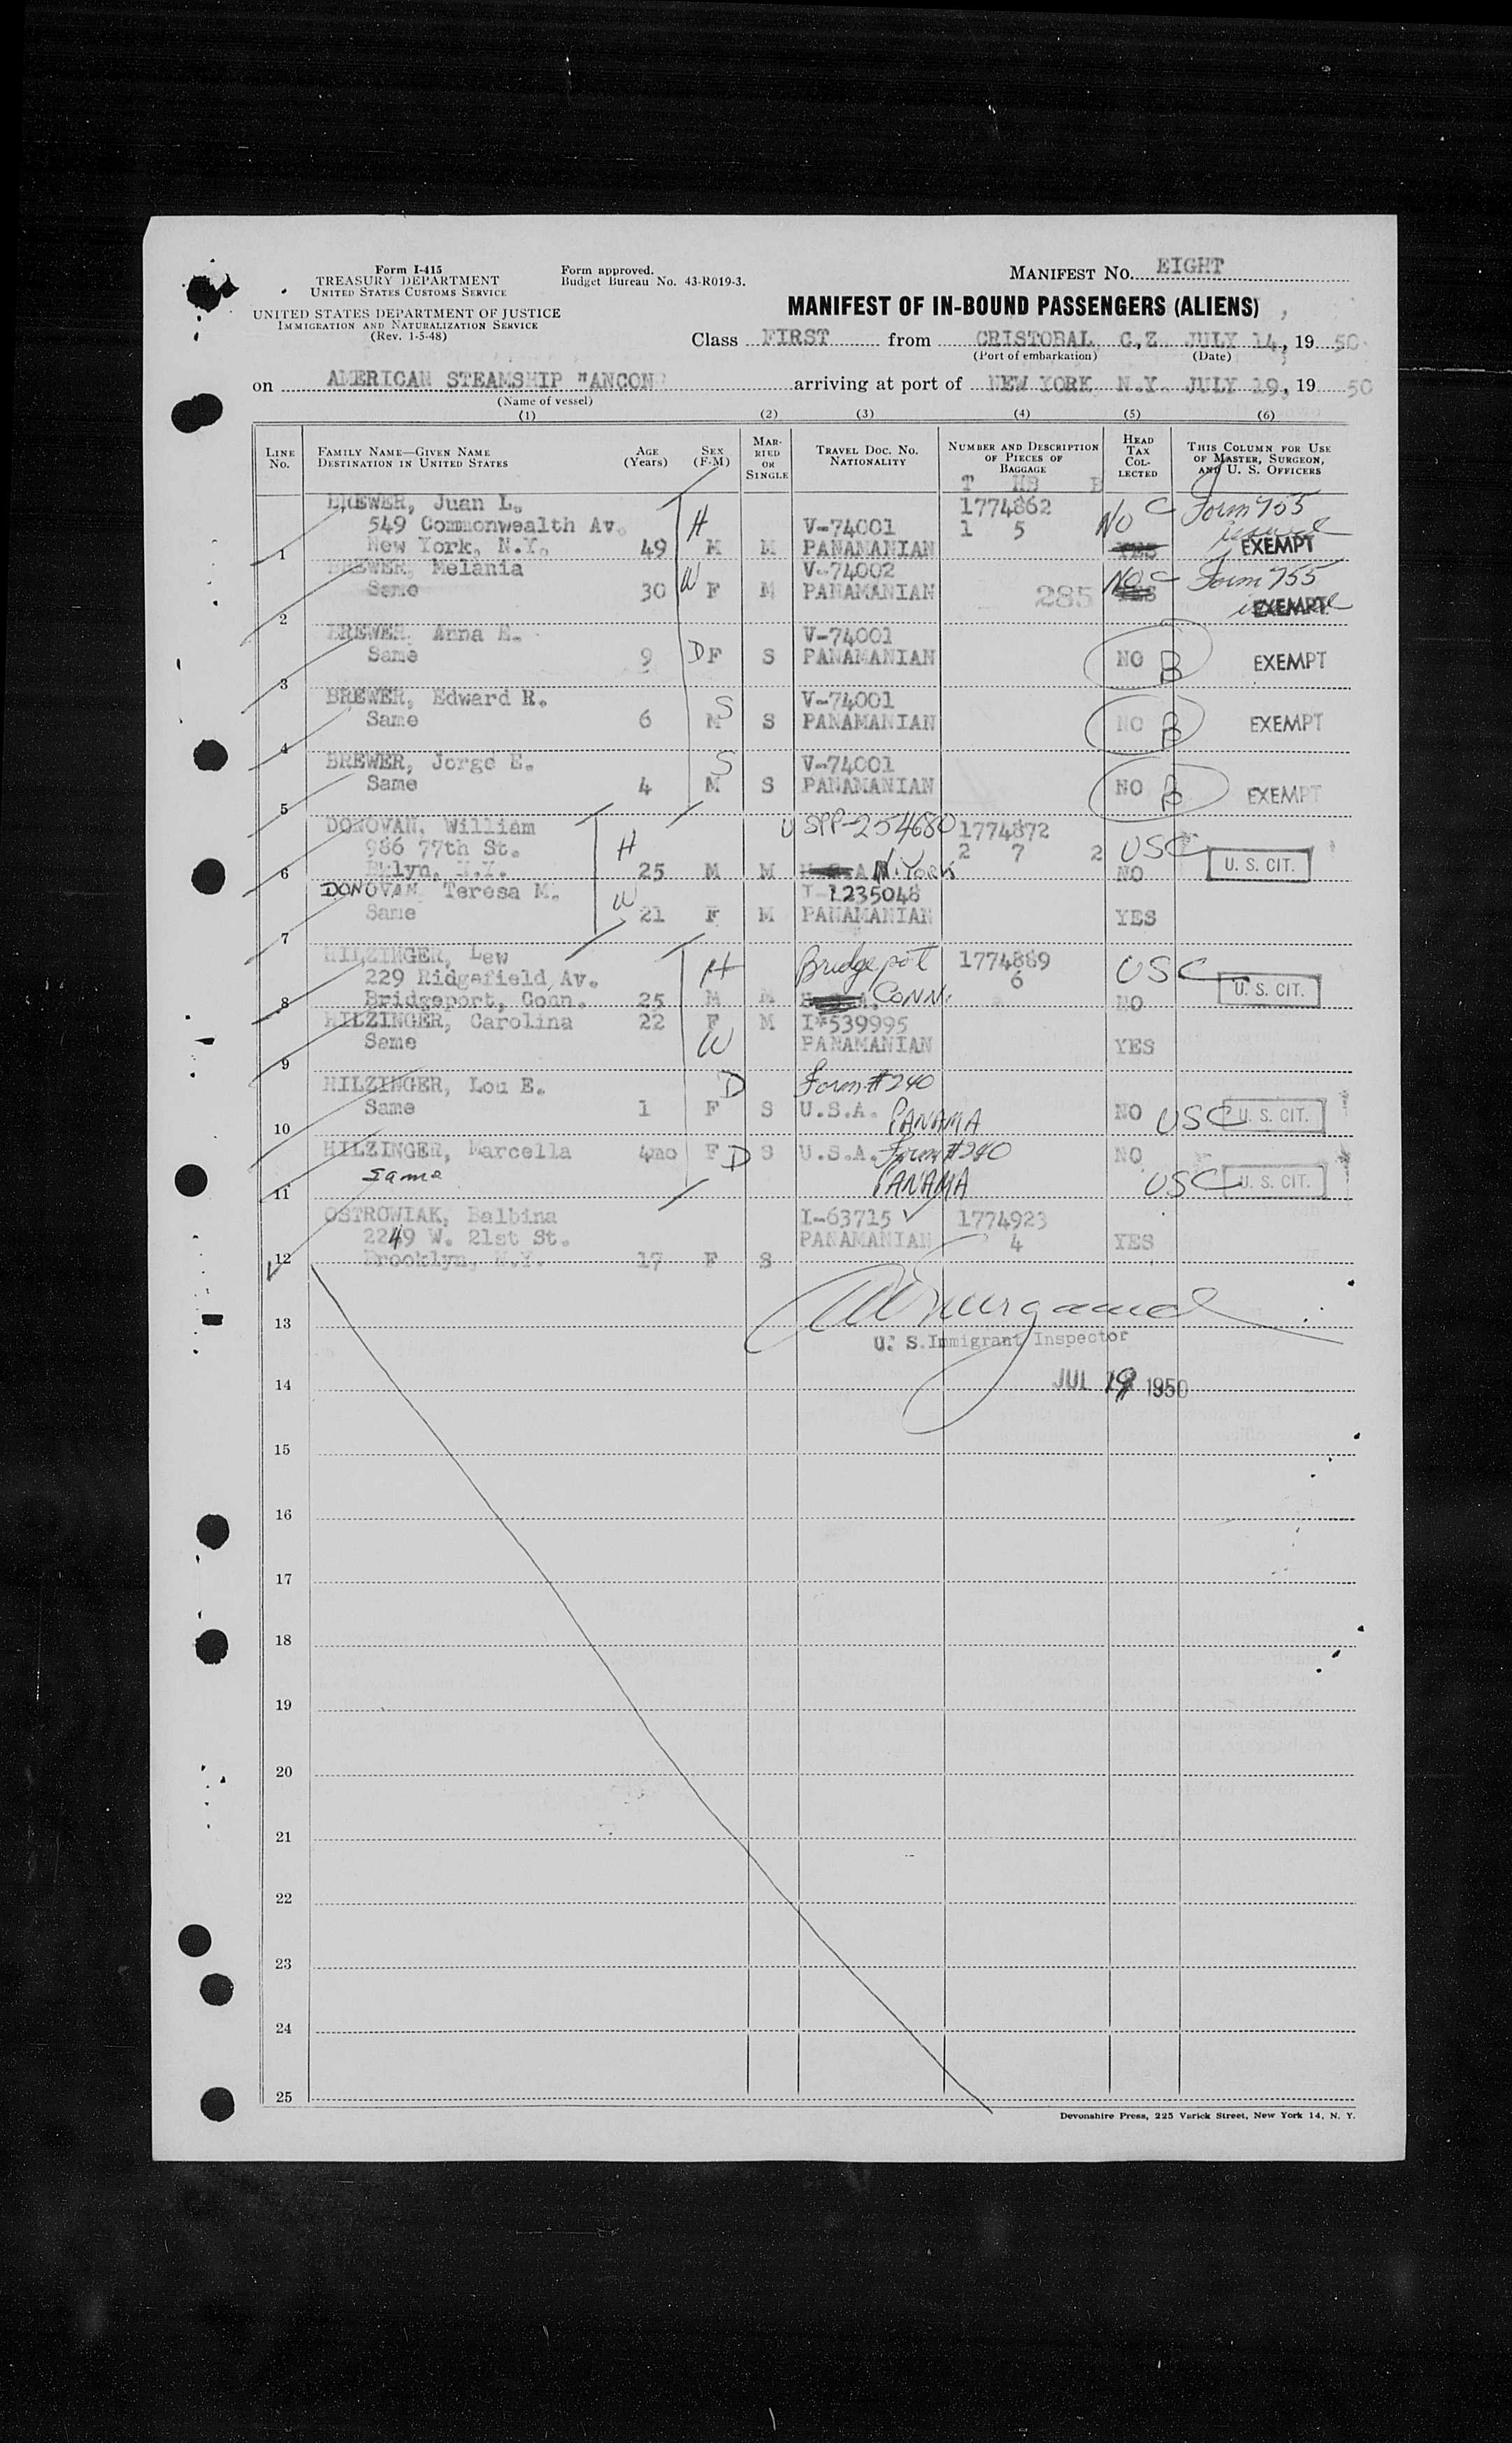 Form I-415
TREASURY DEPARTMENT
UNITED STATES CUSTOMS SERVICE
UNITED STATES DEPARTMENT OF JUSTICE
IMMIGRATION AND NATURALIZATION SERVICE
(Rev. 1-5-48)
Form approved.
Budget Bureau No. 43-R019-3.
MANIFEST No. EIGHT
MANIFEST OF IN-BOUND PASSENGERS (ALIENS)
Class FIRST from CRISTOBAL, C.Z. JULY 14, 19 50
(Port of embarkation) (Date)
on AMERICAN STEAMSHIP "ANCON" arriving at port of NEW YORK N.Y. JULY 19, 19 50
(Name of vessel)
(1) (2) (3) (4) (5) (6)
LINE No. FAMILY NAME—GIVEN NAME DESTINATION IN UNITED STATES AGE (Years) SEX (F-M) MARRIED OR SINGLE TRAVEL DOC. NO. NATIONALITY NUMBER AND DESCRIPTION OF PIECES OF BAGGAGE HEAD TAX COLLECTED THIS COLUMN FOR USE OF MASTER, SURGEON, AND U. S. OFFICERS
T HB B
BREWER, Juan L. 1774862 Form 755
549 Commonwealth Av. H V-74001 1 5 NO C issued
1 New York, N.Y. 49 M M PANAMANIAN YES EXEMPT
BREWER, Melania W V-74002 NO C Form 755
Same 30 F M PANAMANIAN 285 YES issued
2 EXEMPT
BREWER, Anna E. V-74001
Same 9 D F S PANAMANIAN NO B EXEMPT
3
BREWER, Edward R. S V-74001
Same 6 M S PANAMANIAN NO B EXEMPT
4
BREWER, Jorge E. S V-74001
Same 4 M S PANAMANIAN NO B EXEMPT
5
DONOVAN, William USPP-254680 1774872
986 77th St. H 2 7 2 USC U. S. CIT.
6 Bklyn, N.Y. 25 M M N. YORK NO
DONOVAN Teresa M. W I-1235048
Same 21 F M PANAMANIAN YES
7
HILZINGER, Lew Bridgepot 1774889
229 Ridgefield Av. H 6 USC U. S. CIT.
8 Bridgeport, Conn. 25 M M CONN. NO
HILZINGER, Carolina 22 F M I*539995
Same W PANAMANIAN YES
9
HILZINGER, Lou E. D Form #240
Same 1 F S U.S.A. PANAMA NO USC U. S. CIT.
10
HILZINGER, Marcella 4mo F D S U.S.A. Form #240 NO
same PANAMA USC U. S. CIT.
11
OSTROWIAK, Balbina I-63715 ✓ 1774923
2249 W. 21st St. PANAMANIAN 4 YES
12 Brooklyn, N.Y. 17 F S
13
U. S. Immigrant Inspector
14 JUL 19 1950
15
16
17
18
19
20
21
22
23
24
25
Devonshire Press, 225 Varick Street, New York 14, N. Y.